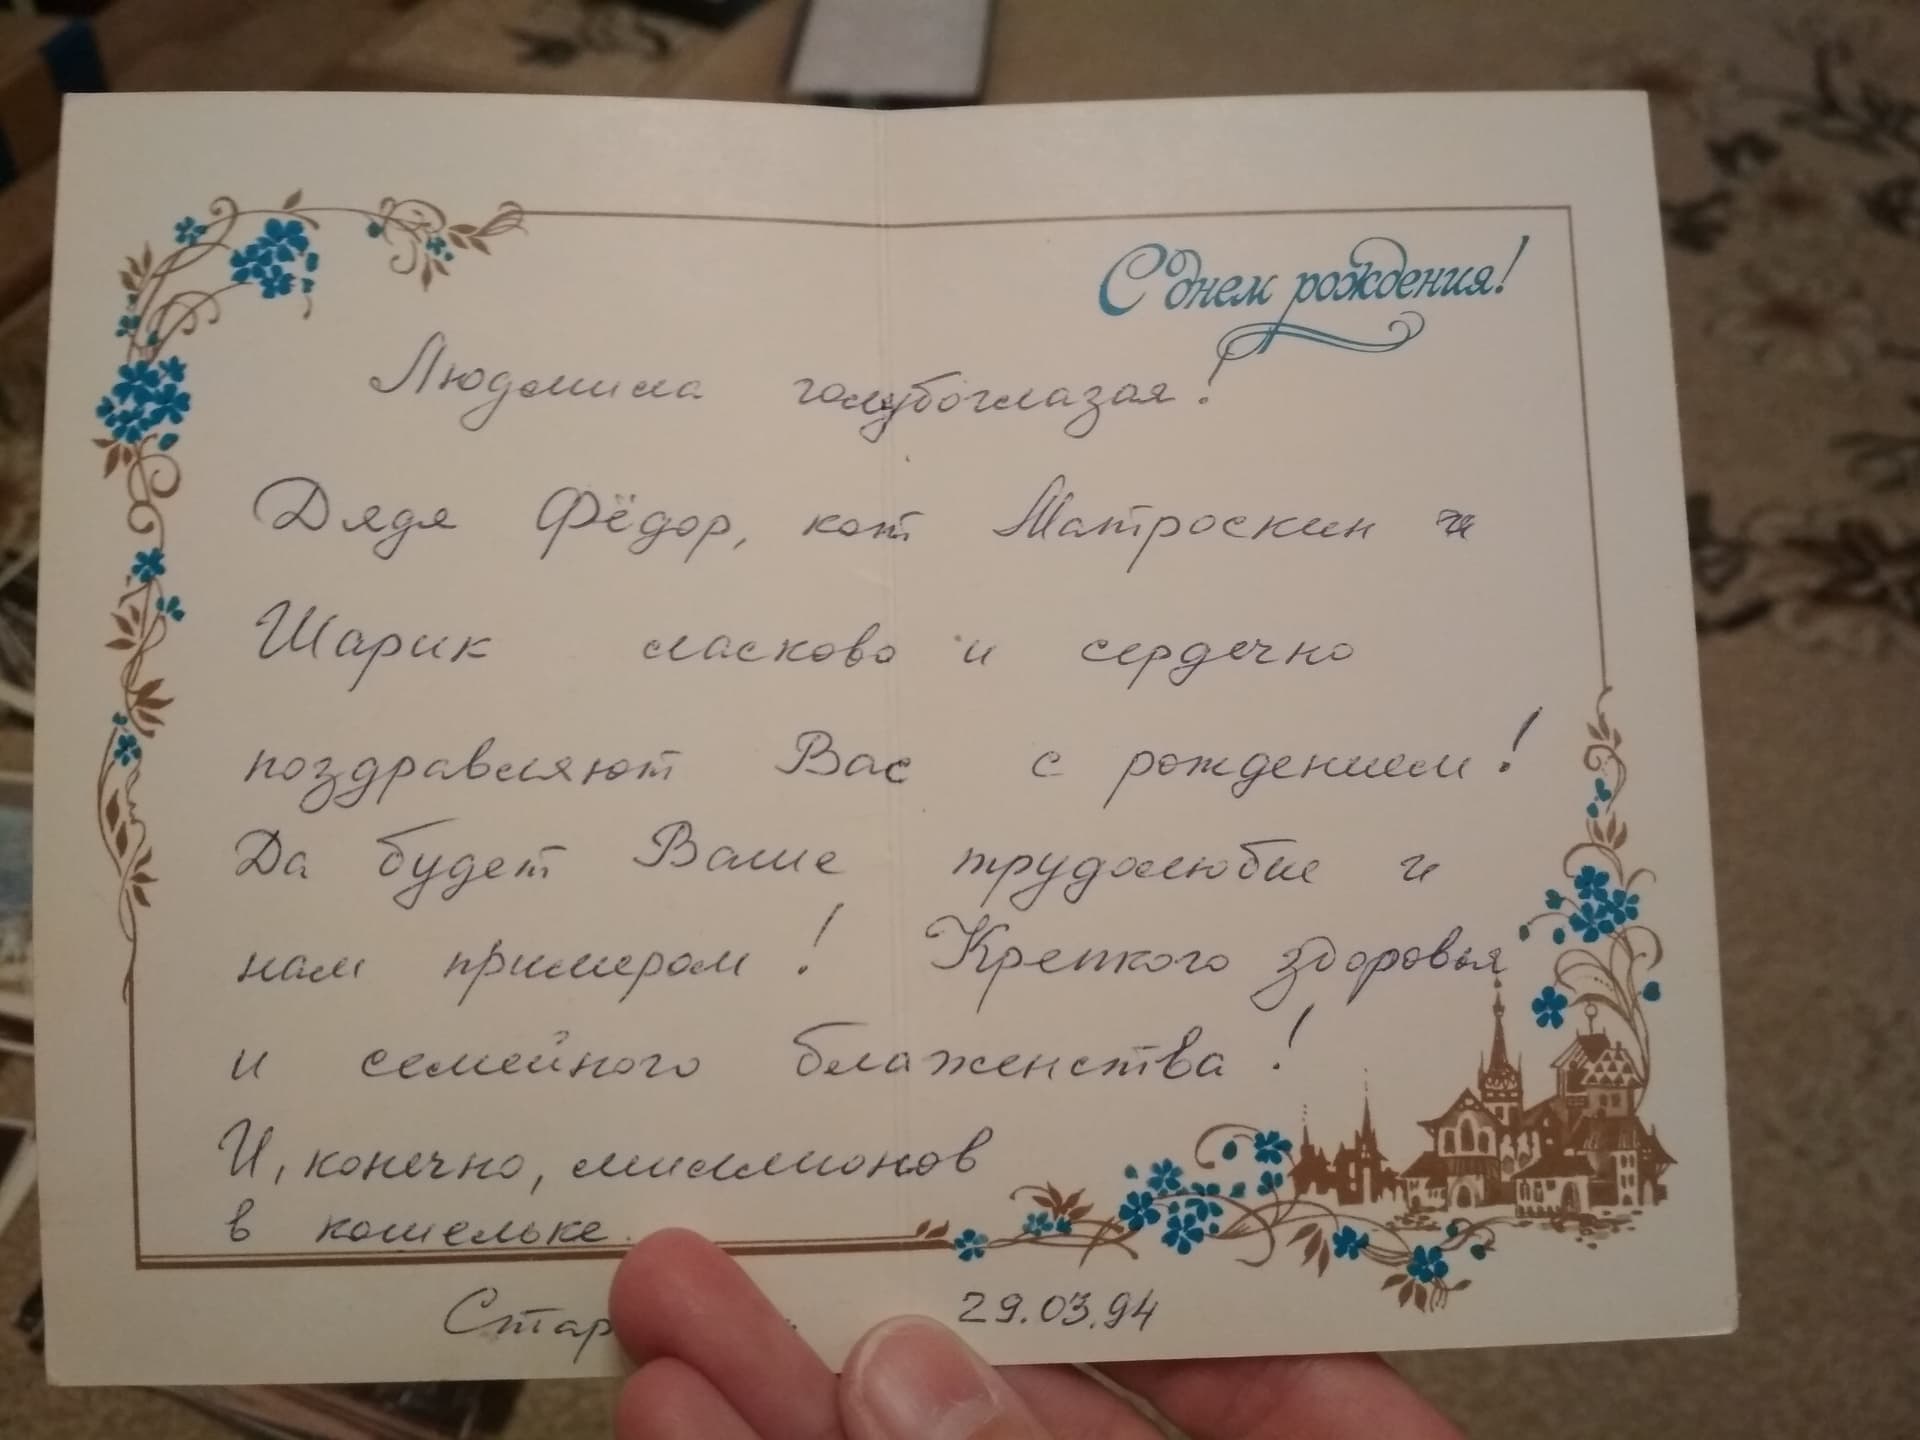 С днем рождения!
Людмила голубоглазая!
Дядя Фёдор, кот Матроскин и
Шарик ласково и сердечно
поздравляют Вас с рождением!
Да будет Ваше трудолюбие и
нам примером! Крепкого здоровья
и семейного блаженства!
И, конечно, миллионов
в кошельке.
29.03.94